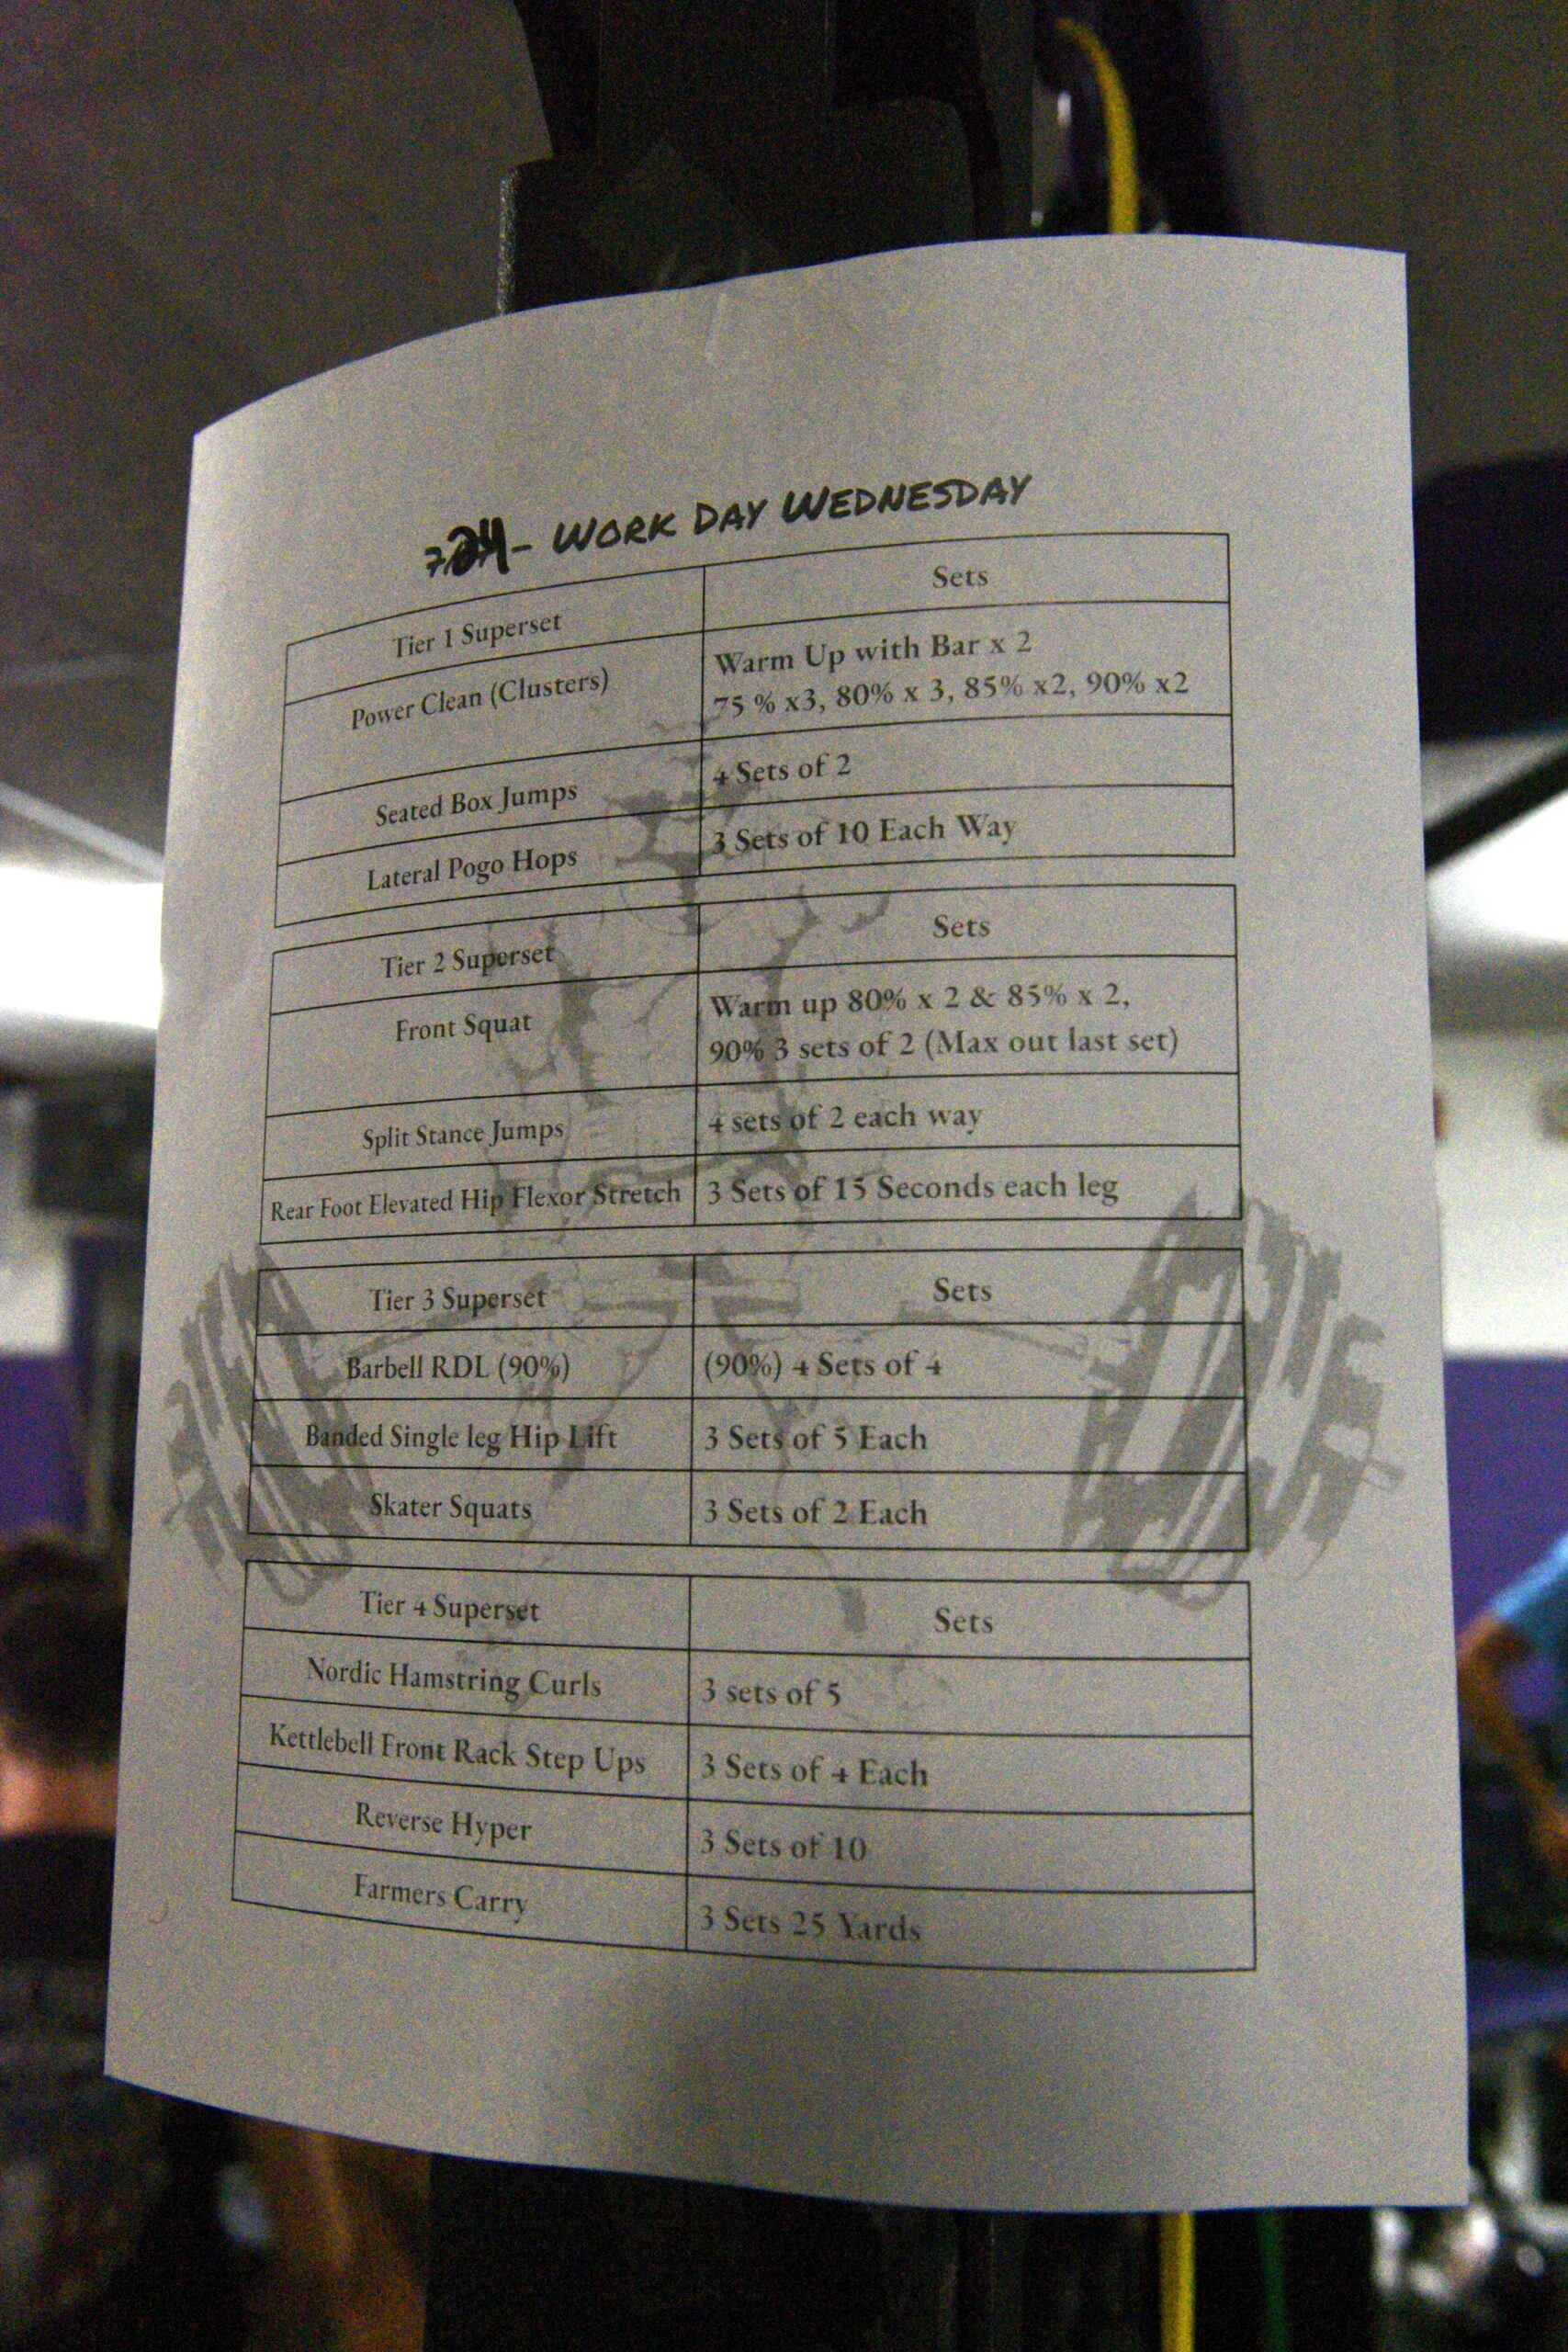 7.24 - WORK DAY WEDNESDAY
Tier 1 Superset Sets
Power Clean (Clusters) Warm Up with Bar x 2
75 % x3, 80% x 3, 85% x2, 90% x2
Seated Box Jumps 4 Sets of 2
Lateral Pogo Hops 3 Sets of 10 Each Way
Tier 2 Superset Sets
Front Squat Warm up 80% x 2 & 85% x 2,
90% 3 sets of 2 (Max out last set)
Split Stance Jumps 4 sets of 2 each way
Rear Foot Elevated Hip Flexor Stretch 3 Sets of 15 Seconds each leg
Tier 3 Superset Sets
Barbell RDL (90%) (90%) 4 Sets of 4
Banded Single leg Hip Lift 3 Sets of 5 Each
Skater Squats 3 Sets of 2 Each
Tier 4 Superset Sets
Nordic Hamstring Curls 3 sets of 5
Kettlebell Front Rack Step Ups 3 Sets of 4 Each
Reverse Hyper 3 Sets of 10
Farmers Carry 3 Sets 25 Yards